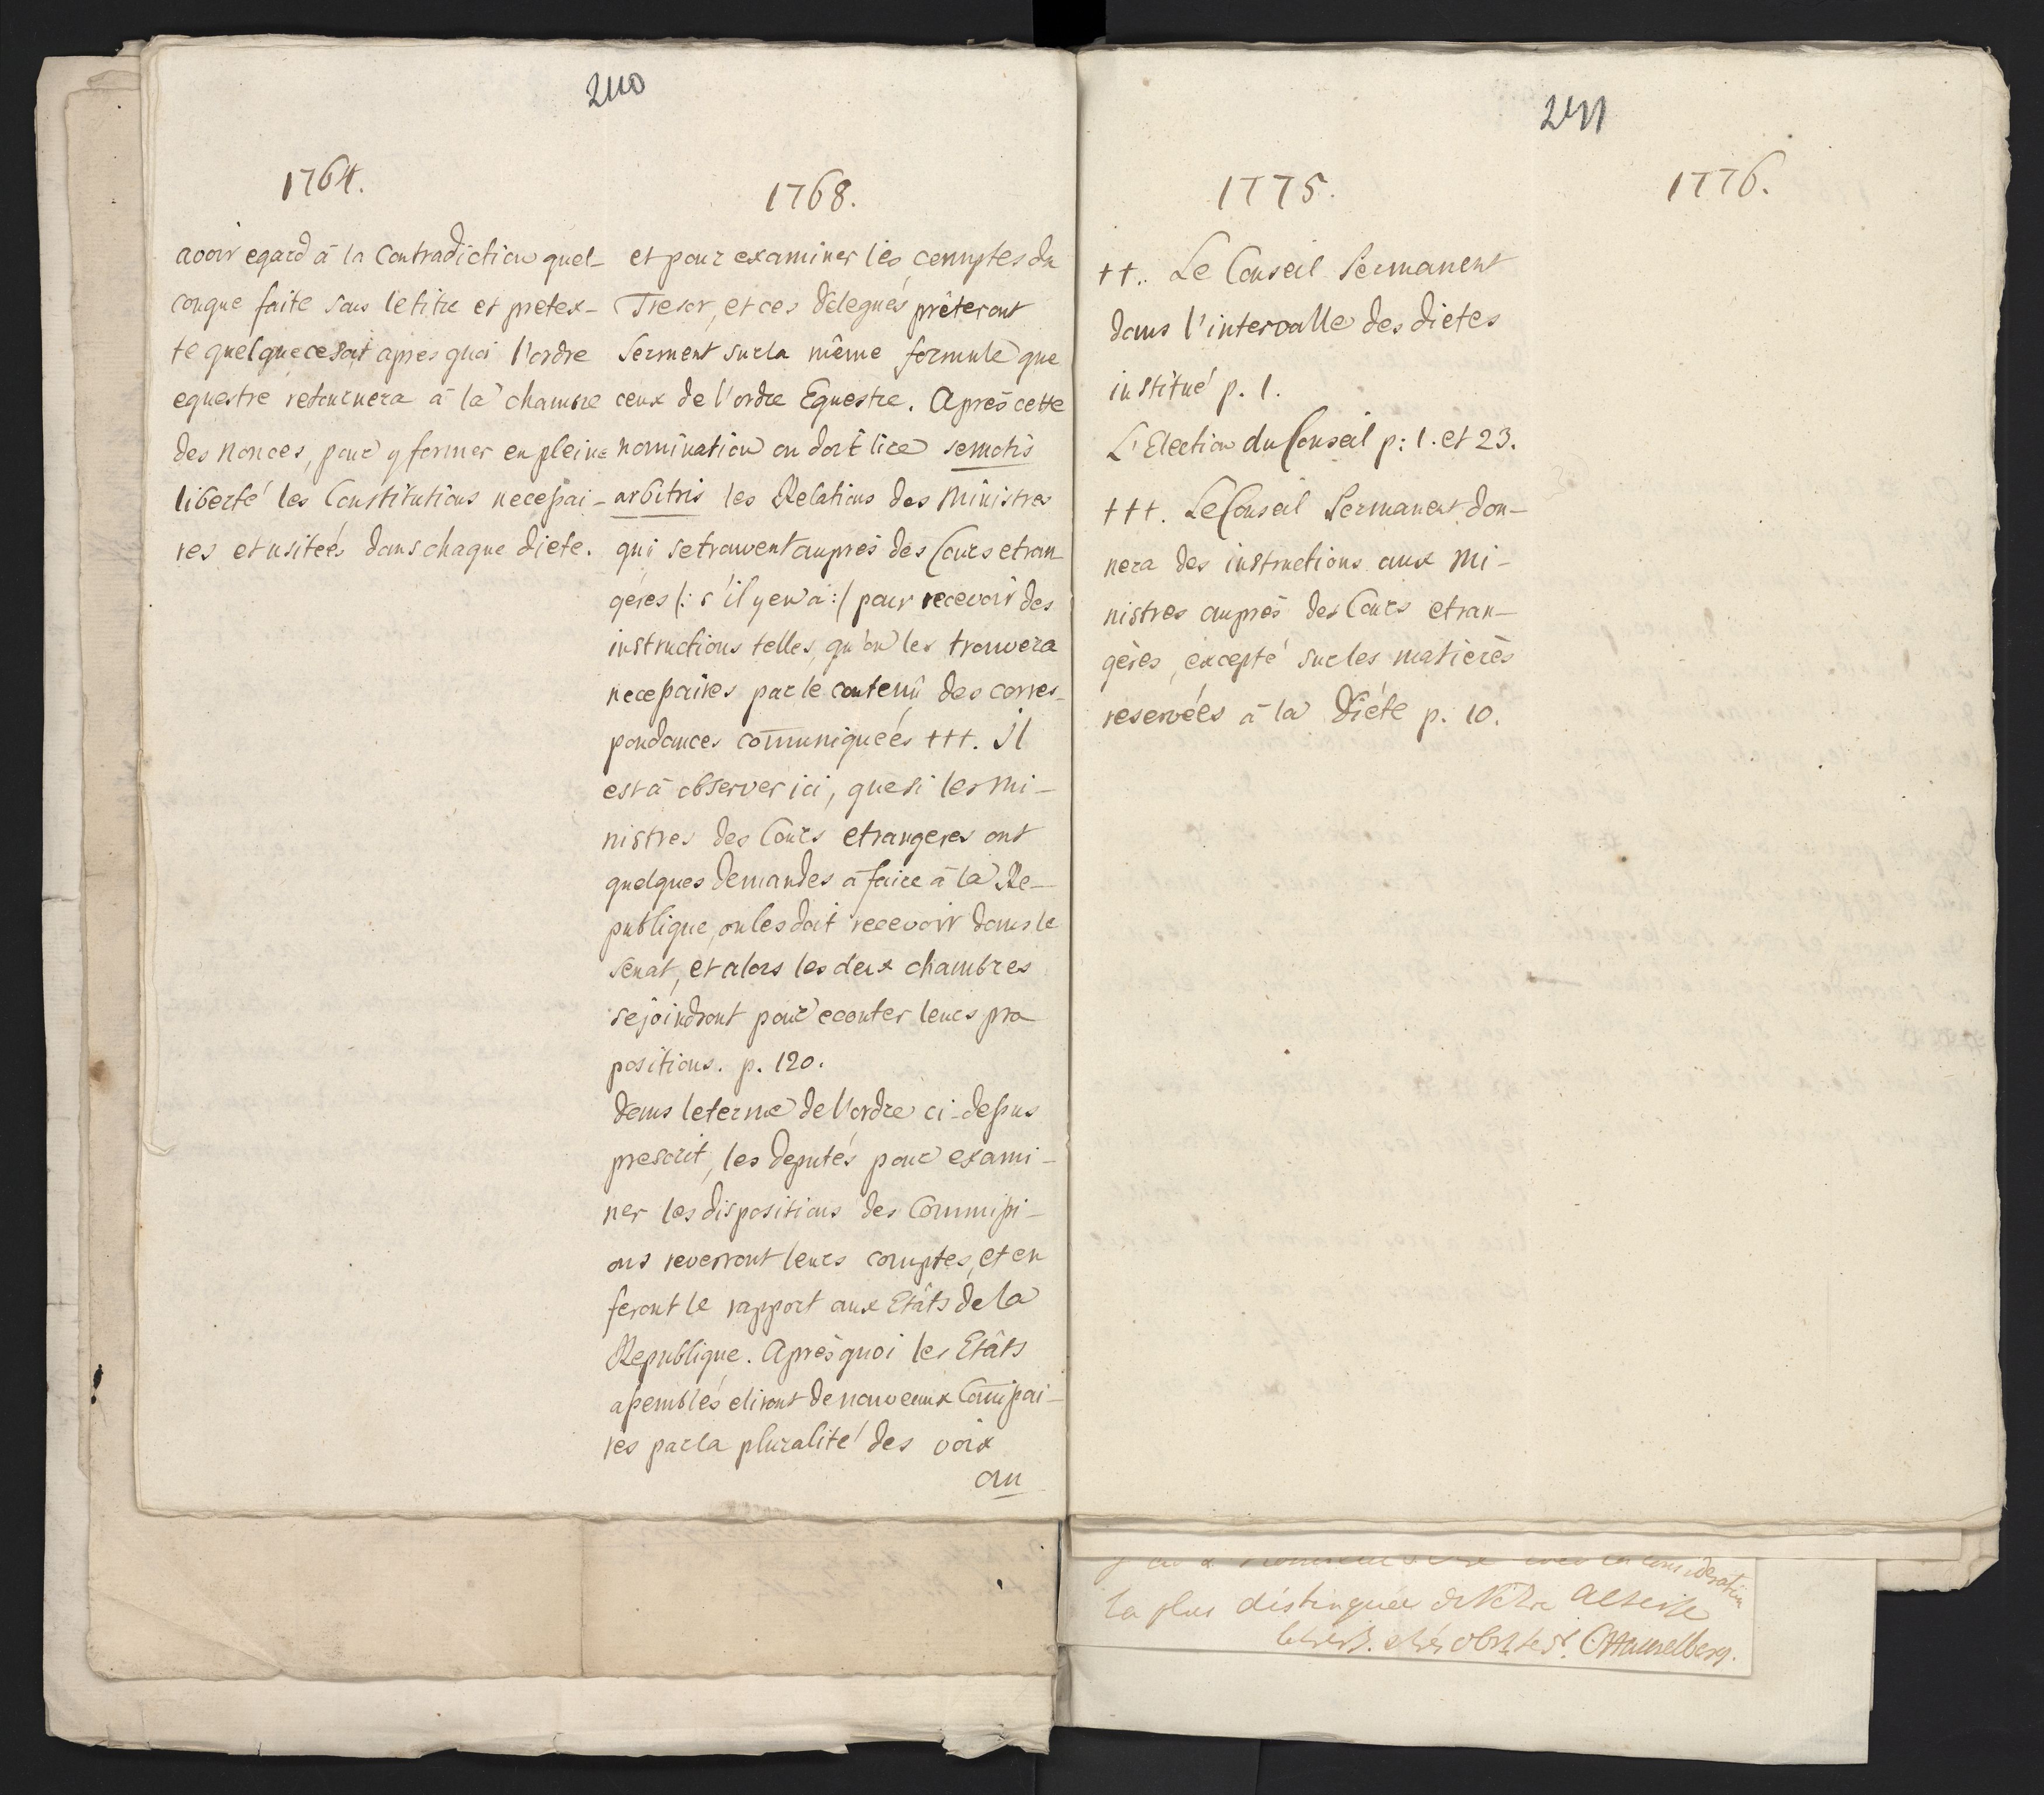 240
1764.
avoir egard à la Contradiction quel-
conque faite sous le titre et pretex-
te quelque ce soit apres quoi l'ordre
equestre retournera à la chambre
des Nonces, pour y former en pleine
liberté les Constitutions necessai-
res et usitées dans chaque diete.
1768.
et pour examiner les comptes du
Tresor, et ces délegués prêteront
Serment sur la même formule que
ceux de l'ordre Equestre. Après cette
nomination on doit lire semotis
arbitris les Relations des Ministres
qui se trouvent auprès des Cours etran
géres /: s'il y en a :/ pour recevoir des
instructions telles, qu'on les trouvera
necessaires par le contenû des corres-
pondances communiquées +++. Il
est à observer ici, que si les Mi-
nistres des Cours etrangeres ont
quelques Demandes à faire à la Re-
publique, on les doit recevoir dans le
Senat, et alors les deux chambres
se joindront pour ecouter leurs pro
positions. p. 120.
Dans le terme de l'ordre ci-dessus
prescrit, les deputés pour exami-
ner les dispositions des Commissi-
ons reverront leurs comptes, et en
feront le rapport aux Etâts de la
Republique. Après quoi les Etâts
assemblés eliront de nouveaux Commissai-
res par la pluralité des voix
au
241
1775.
++. Le Conseil Permanent
dans l'intervalle des dietes
institué p. 1.
L'Election du Conseil p: 1. et 23.
+++. Le Conseil Permanent don-
nera des instructions aux Mi-
nistres auprès des Cours etran-
gères, excepté sur les matières
reservées à la Diéte p. 10.
1776.
consideration
la plus distinguée de Votre Altesse